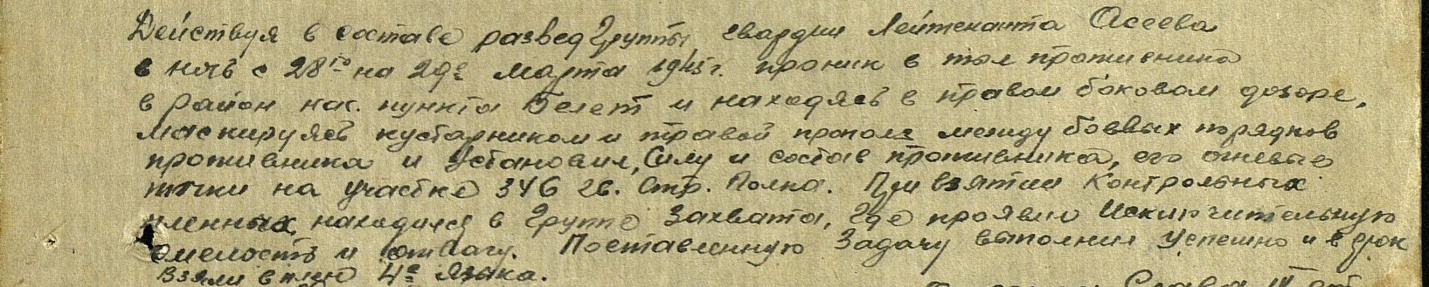 Действуя в составе разведгруппы гвардии Лейтенанта Асеева
в ночь с 28го на 29е марта 1945 г. проник в тыл противника
в район нас. пункта Белет и находясь в правом боковом дозоре,
маскируясь кустарником и травой прополз между боевых порядков
противника и установил, силу и состав противника, его огневые
точки на участке 346 гв. Стр. Полка. При взятии Контрольных
пленных, находился в группе Захвата, где проявил Исключительную
смелость и отвагу. Поставленную Задачу выполнил успешно и в срок
Взяли в плен 4е языка.
Слава